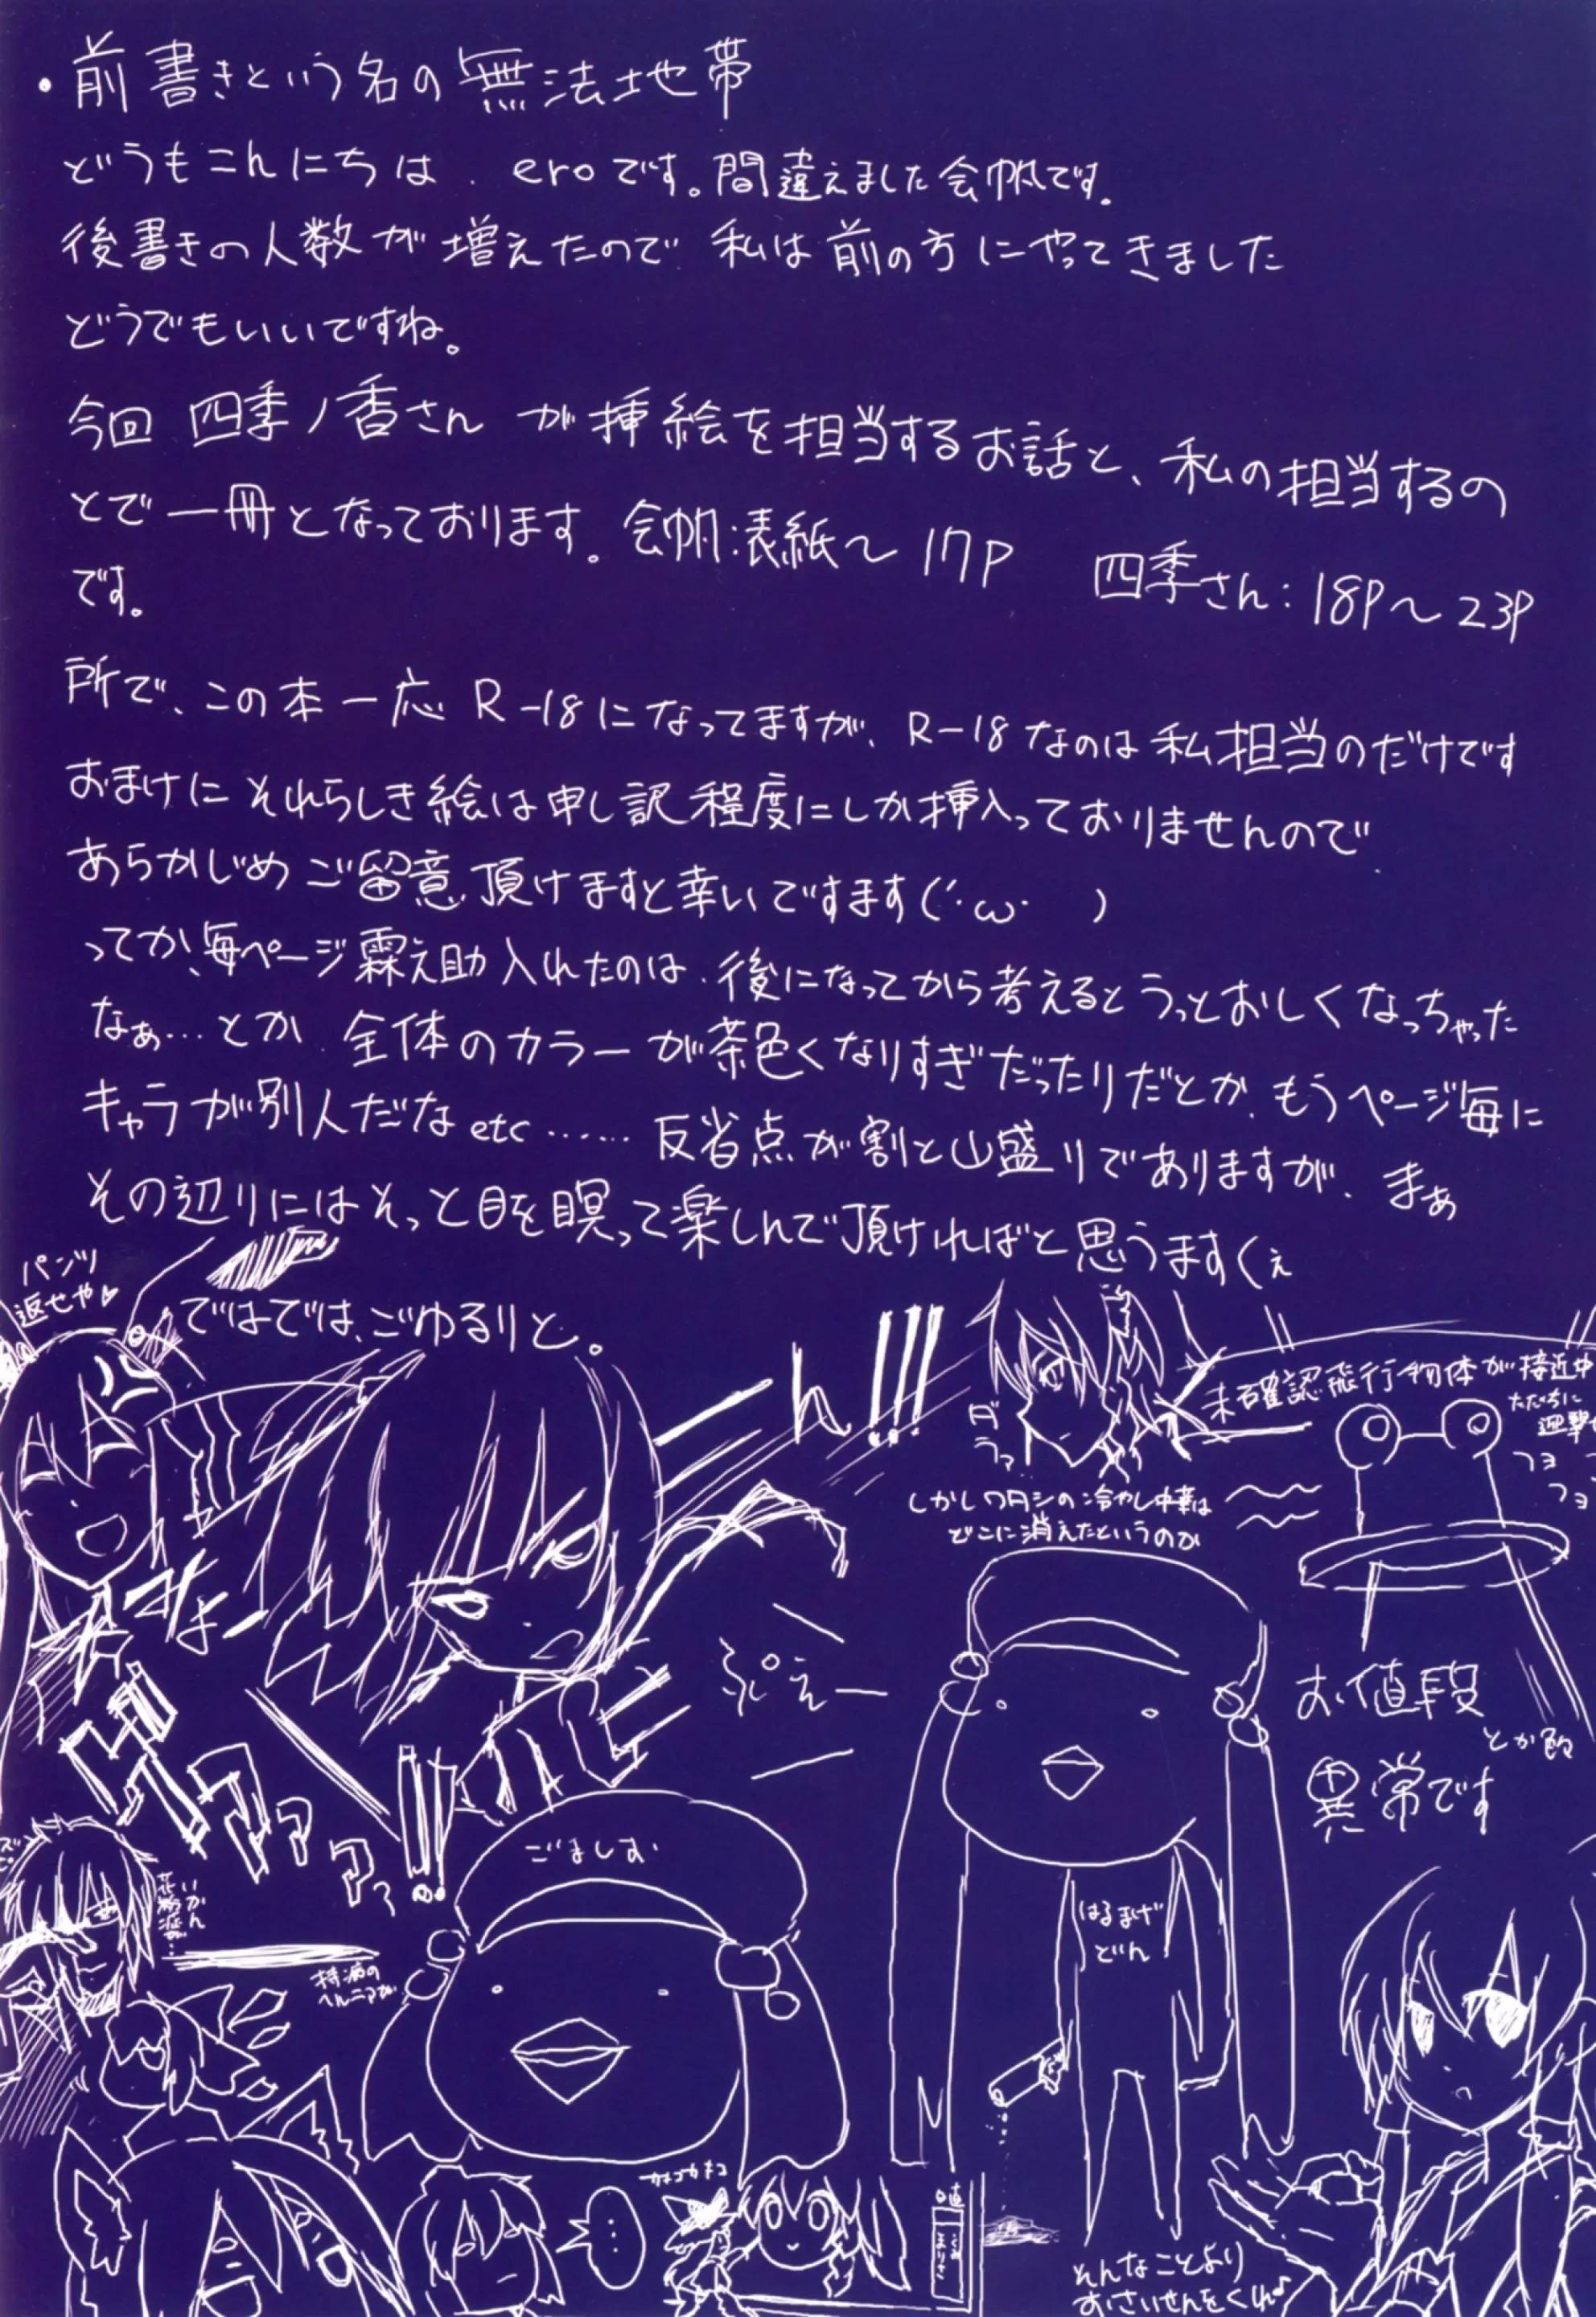 ・前書きという名の無法地帯
どうもこんにちは、eroです。間違えました会帆です。
後書きの人数が増えたので 私は前の方にやってきました
どうでもいいですね。
今回 四季ノ香さん が挿絵を担当するお話と、私の担当するの
とで一冊となっております。会帆:表紙〜17P 四季さん:18P〜23P
です。
所で、この本一応 R-18になってますが、R-18なのは私担当のだけです
おまけにそれらしき絵は申し訳程度にしか挿入っておりませんので
あらかじめご留意頂けますと幸いですます(´・ω・ )
ってか、毎ページ霖之助入れたのは、後になってから考えるとうっとおしくなっちゃった
なぁ…とか 全体のカラーが茶色くなりすぎだったりだとか、もうページ毎に
キャラが別人だな etc…… 反省点が割と山盛りでありますが、まぁ
その辺りにはそっと目を瞑って楽しんで頂ければと思うますくぇ
ではでは、ごゆるりと。
パンツ
返せや♡
なーー
ん!!!
ダラァ
未確認飛行物体が接近中
ただちに
迎撃
フヨ
フヨ
しかしワタシの冷やし中華は
どこに消えたというのか
ぷぇー
お値段
とか色々
異常です
ごましお
はるまげ
どん
いかん
花粉症が…
持病の
ヘルニアが
…
そんなことより
おさいせんをくれ♪